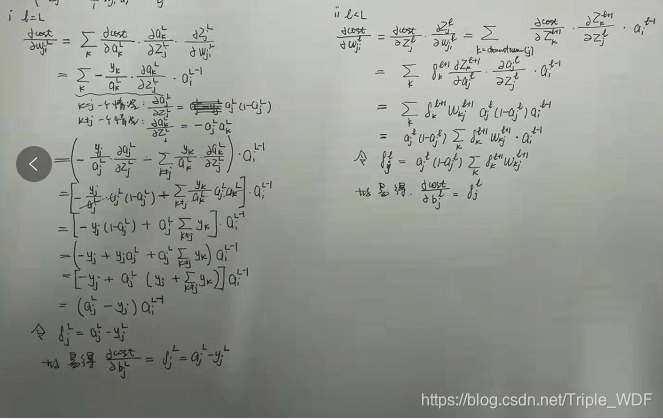 i l=L
∂cost/∂w_{ji}^L = ∑_k ∂cost/∂a_k^L · ∂a_k^L/∂Z_j^L · ∂Z_j^L/∂w_{ji}^L
= ∑_k - y_k/a_k^L · ∂a_k^L/∂Z_j^L · a_i^{L-1}
k=j 一个情况: ∂a_j^L/∂Z_j^L = a_j^L(1-a_j^L)
k≠j 一个情况: ∂a_k^L/∂Z_j^L = -a_j^L a_k^L
= (- y_j/a_j^L · ∂a_j^L/∂Z_j^L - ∑_{k≠j} y_k/a_k^L · ∂a_k^L/∂Z_j^L) · a_i^{L-1}
= [- y_j/a_j^L · a_j^L(1-a_j^L) + ∑_{k≠j} y_k/a_k^L a_j^L a_k^L] · a_i^{L-1}
= [-y_j(1-a_j^L) + a_j^L ∑_{k≠j} y_k] · a_i^{L-1}
= (-y_j + y_j a_j^L + a_j^L ∑_{k≠j} y_k) a_i^{L-1}
= [-y_j + a_j^L (y_j + ∑_{k≠j} y_k)] a_i^{L-1}
= (a_j^L - y_j) a_i^{L-1}
令 δ_j^L = a_j^L - y_j^L
易得 ∂cost/∂b_j^L = δ_j^L = a_j^L - y_j^L
ii l<L
∂cost/∂w_{ji}^l = ∂cost/∂Z_j^l · ∂Z_j^l/∂w_{ji}^l = ∑_{k=downstream(j)} ∂cost/∂Z_k^{l+1} · ∂Z_k^{l+1}/∂Z_j^l · a_i^{l-1}
= ∑_k δ_k^{l+1} ∂Z_k^{l+1}/∂a_j^l · ∂a_j^l/∂Z_j^l · a_i^{l-1}
= ∑_k δ_k^{l+1} w_{kj}^{l+1} a_j^l(1-a_j^l) a_i^{l-1}
= a_j^l(1-a_j^l) ∑_k δ_k^{l+1} w_{kj}^{l+1} · a_i^{l-1}
令 δ_j^l = a_j^l(1-a_j^l) ∑_k δ_k^{l+1} w_{kj}^{l+1}
易得 ∂cost/∂b_j^l = δ_j^l
https://blog.csdn.net/Triple_WDF